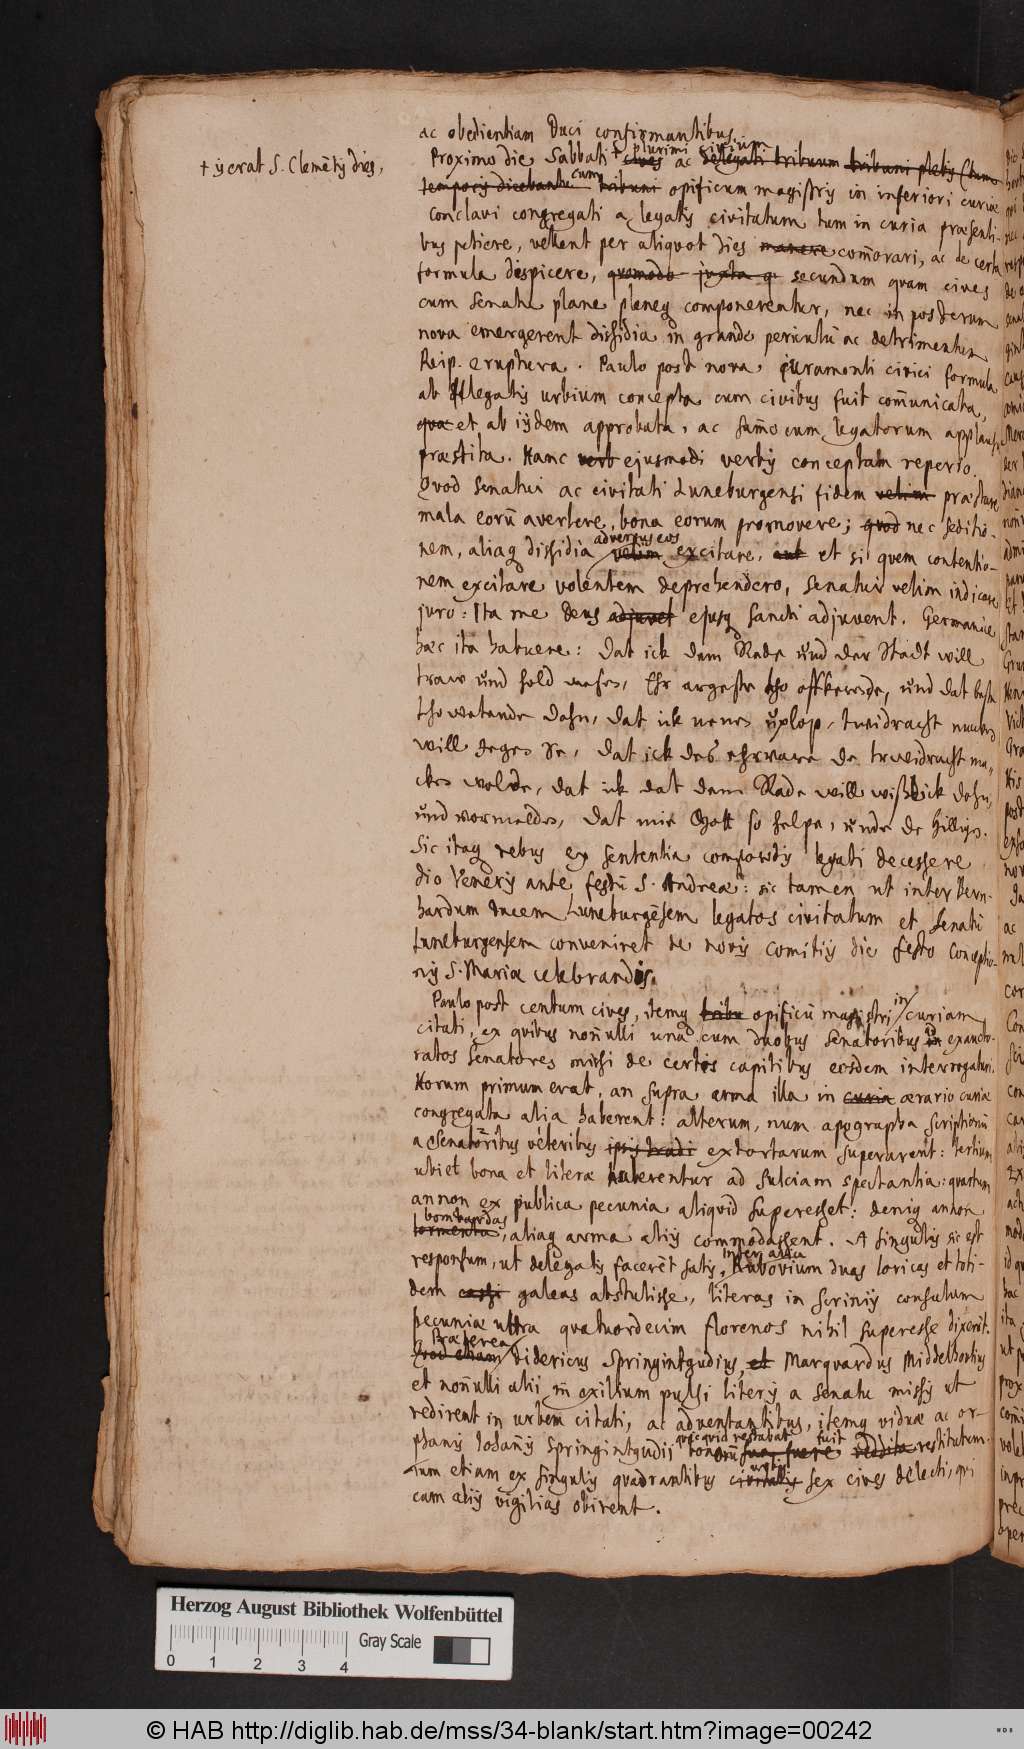 ac obedientiam Duci confirmantibus.
† is erat S. Clemētis dies,
Proximo die Sabbati † plurimi civium ac
cum opificum magistris in inferiori curiæ
conclavi congregati a legatis civitatum tum in curia præsenti-
bus petiere, vellent per aliquot dies com̄orari, ac de certa
formula dispicere, secundum quam cives
cum Senatu plane pleneq componerentur, nec in posterum
nova emergerent dissidia in grande periculū ac detrimentum
Reip. eruptura. Paulo post nova juramenti civici formula
ab delegatis urbium concepta cum civibus fuit com̄unicata,
et ab ijsdem approbata, ac sum̄o cum legatorum applausu
præstita. Hanc ejusmodi verbis conceptam reperio.
Quod Senatui ac civitati Luneburgensi fidem præstare
mala eorū avertere, bona eorum promovere; nec seditio-
nem, aliaq dissidia adversus eos excitare, et si quem contentio-
nem excitare volentem deprehendero, Senatui velim indicare
juro: Ita me Deus ejusq Sancti adjuvent. Germanice
hæc ita habuere: Dat ick dem Rade und der Stadt will
traw und hold wesen, Ehr argeste tho affkerende, und dat beste
tho wetende dohn, dat ick nenen uplop, twidracht maken
will deges se, dat ick des ehrware de twidracht ma-
cken wolde, dat ick dat dem Rade will wißlick dohn,
und vormelden, dat mie Gott so helpe, unde de hilligen.
Sic itaq rebus ex sententia compositis legati decessere
die Veneris ante festū S. Andreæ: sic tamen ut inter Bern-
hardum Ducem Luneburgēsem legatos civitatum et Senatū
Luneburgensem conveniret de novis comitiis die festo Conceptio-
nis S. Mariæ celebrandis.
Paulo post centum cives, itemq opificū magistri in curiam
citati, ex quibus non̄ulli una cum duobus Senatoribus ad exaucto-
ratos Senatores missi de certis capitibus eosdem interrogaturi.
Horum primum erat, an supra arma illa in ærario curiæ
congregata alia haberent: alterum, num apographa scriptionū
a Senatoribus veteribus extortarum superarent: tertium
ubi et bona et literæ haberentur ad Sulciam spectantia: quartum
annon ex publica pecunia aliquid superesset: deniq annon
bombardas, aliaq arma aliis commodassent. A singulis sic est
responsum, ut delegatis facerēt satis, inter alia Rubovium duas loricas et toti-
dem galeas abstulisse, literas in scriniis consulum
pecuniæ ultra quatuordecim florenos nihil superesse dixerit.
Præterea Didericus Springintgudius, Marquardus Middelhovius
et non̄ulli alii in exilium pulsi literis a Senatu missis ut
redirent in urbem citati, ac adventantibus, itemq viduæ ac or-
phanis Johan̄is Springintgudii quicquid restabat bonorū fuit restitutum.
Tum etiam ex singulis quadrantibus urbis sex cives delecti, qui
cum aliis vigilias obirent.
Herzog August Bibliothek Wolfenbüttel
Gray Scale
0 1 2 3 4
© HAB http://diglib.hab.de/mss/34-blank/start.htm?image=00242